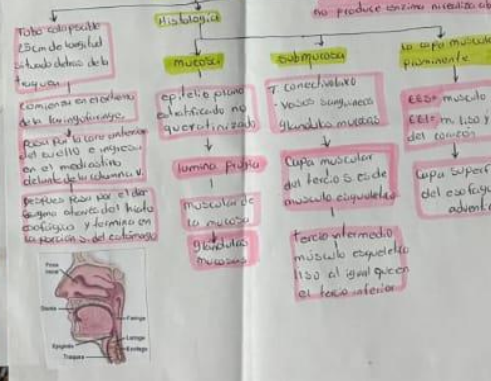 no produce enzima ni realiza ab
Histologica
Tubo colapsable
25cm de longitud
situado detras de la
traquea
comienza en el extremo
de la laringofaringe,
Pasa por la cara anterior
del cuello e ingresa
en el mediastino
delante de la columna V.
Despues pasa por el dia
fragma atraves del hiato
esofagico y termina en
la porcion s. del estomago
mucosa
epitelio plano
estratificado no
queratinizado
lamina propia
muscular de
la mucosa
glandulas
mucosas
submucosa
T. conectivo laxo
- vasos sanguineos
glandulas mucosas
Capa muscular
del tercio s. es de
musculo esqueletico
Tercio intermedio
músculo esqueletico
liso al igual que en
el tercio inferior
la capa muscular
EES= musculo
EEI= m. liso y
del corazon
Capa superf
del esofag
advent
Fosa
nasal
Faringe
Laringe
Esofago
Epiglotis
Traquea